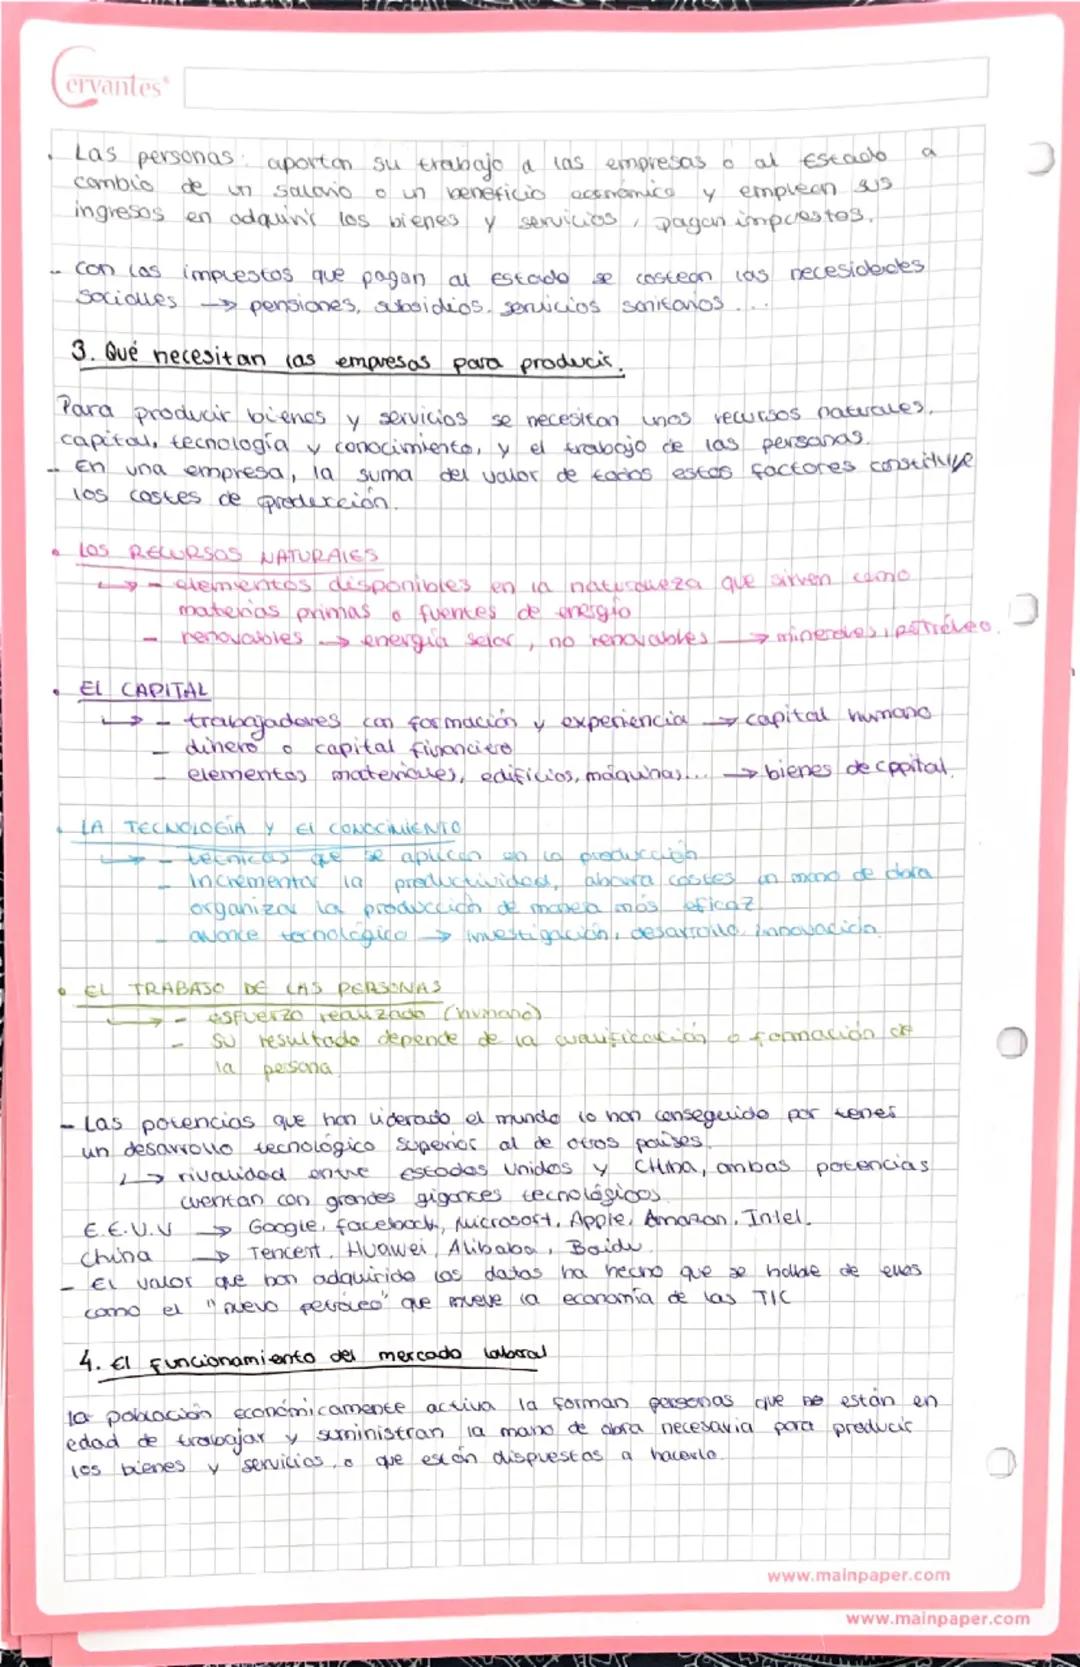 Cervantes
. Las personas: aportan su trabajo a las empresas o al Estado a
cambio de un salario o un beneficio económico y emplean sus
ingresos en adquirir los bienes y servicios, pagan impuestos.
- Con los impuestos que pagan al estado se costean las necesidades
sociales → pensiones, subsidios, servicios sanitarios ...
3. Qué necesitan las empresas para producir.
Para producir bienes y servicios se necesitan unos recursos naturales,
capital, tecnología y conocimiento, y el trabajo de las personas.
- En una empresa, la suma del valor de todos estos factores constituye
los costes de producción.
• LOS RECURSOS NATURALES
↳ - elementos disponibles en la naturaleza que sirven como
materias primas o fuentes de energía
- renovables → energía solar, no renovables → minerales, petróleo.
• El CAPITAL
↳ - trabajadores con formación y experiencia → capital humano
- dinero o capital financiero
- elementos materiales, edificios, máquinas... → bienes de capital.
• LA TECNOLOGÍA Y El CONOCIMIENTO
↳ - técnicas que se aplican en la producción
- Incrementar la productividad, ahorra costes en mano de obra
organizar la producción de manera más eficaz
- avance tecnológico → investigación, desarrollo, innovación.
• EL TRABAJO DE LAS PERSONAS
↳ - esfuerzo realizado (humano)
- su resultado depende de la cualificación o formación de
la persona
- Las potencias que han liderado el mundo lo han conseguido por tener
un desarrollo tecnológico superior al de otros países.
↳ rivalidad entre Estados Unidos y China, ambas potencias
cuentan con grandes gigantes tecnológicos.
E.E.U.U → Google, facebook, Microsoft, Apple, Amazon, Intel.
China → Tencent, Huawei, Alibaba, Baidu.
- El valor que han adquirido los datos ha hecho que se hable de ellos
como el "nuevo petróleo" que mueve la economía de las TIC
4. El funcionamiento del mercado laboral
la población económicamente activa la forman personas que están en
edad de trabajar y suministran la mano de obra necesaria para producir
los bienes y servicios, o que están dispuestas a hacerlo.
www.mainpaper.com
www.mainpaper.com